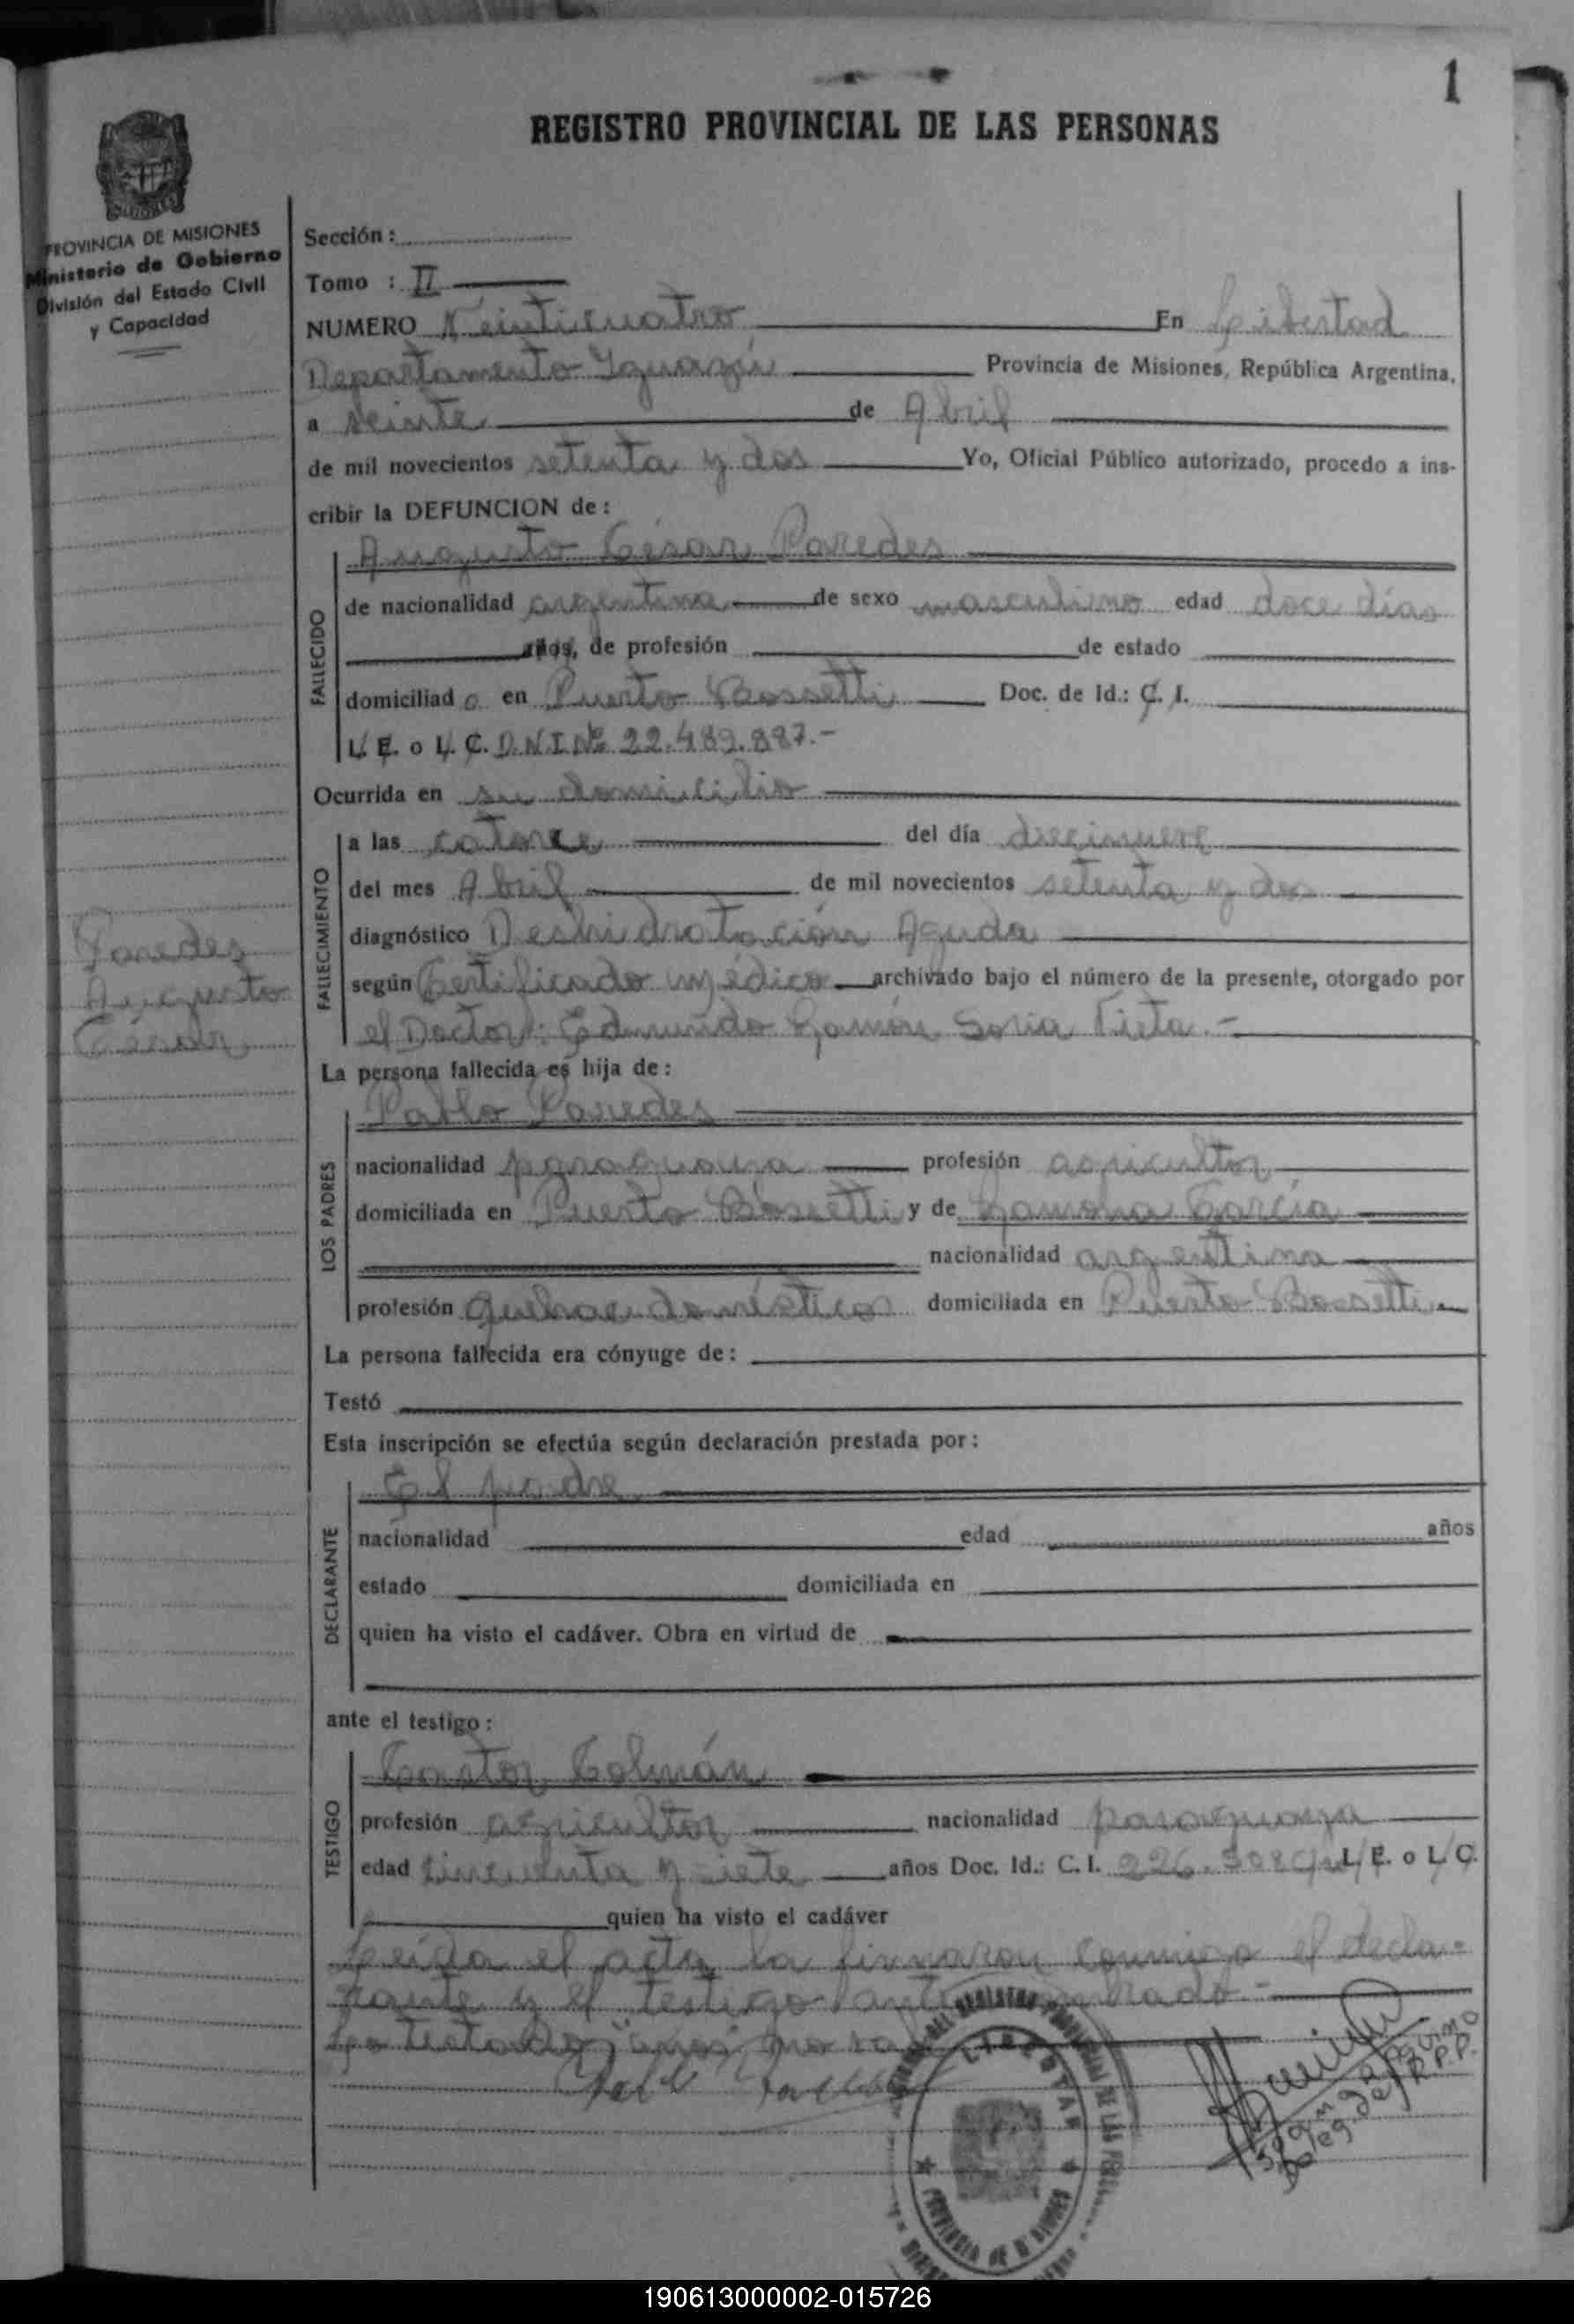 1
REGISTRO PROVINCIAL DE LAS PERSONAS
PROVINCIA DE MISIONES
Ministerio de Gobierno
División del Estado Civil
y Capacidad
Sección:
Tomo : II
NUMERO Veinticuatro En Libertad
Departamento Iguazú Provincia de Misiones, República Argentina,
a veinte de Abril
de mil novecientos setenta y dos Yo, Oficial Público autorizado, procedo a ins-
cribir la DEFUNCION de:
Augusto César Paredes
FALLECIDO
de nacionalidad argentina de sexo masculino edad doce días
años, de profesión de estado
domiciliado en Puerto Bossetti Doc. de Id.: C. I.
L. E. o L. C. D.N.I Nº 22.489.887.-
Ocurrida en su domicilio
FALLECIMIENTO
a las catorce del día diecinueve
del mes Abril de mil novecientos setenta y dos
diagnóstico Deshidratación Aguda
según Certificado médico archivado bajo el número de la presente, otorgado por
el Doctor: Edmundo Ramón Soria Vieta.-
Paredes
Augusto
César
La persona fallecida es hija de:
LOS PADRES
Pablo Paredes
nacionalidad paraguaya profesión agricultor
domiciliada en Puerto Bossetti y de Ramona García
nacionalidad argentina
profesión quehac. domésticos domiciliada en Puerto Bossetti
La persona fallecida era cónyuge de:
Testó
Esta inscripción se efectúa según declaración prestada por:
DECLARANTE
El padre
nacionalidad edad años
estado domiciliada en
quien ha visto el cadáver. Obra en virtud de
ante el testigo:
TESTIGO
Castor Colmán
profesión agricultor nacionalidad paraguaya
edad cincuenta y siete años Doc. Id.: C. I. 226.508 L. E. o L. C.
quien ha visto el cadáver
Leída el acta la firmaron conmigo el decla-
rante y el testigo
Lo testado: "años" no vale
LIBERTAD
PROVINCIA DE MISIONES
190613000002-015726